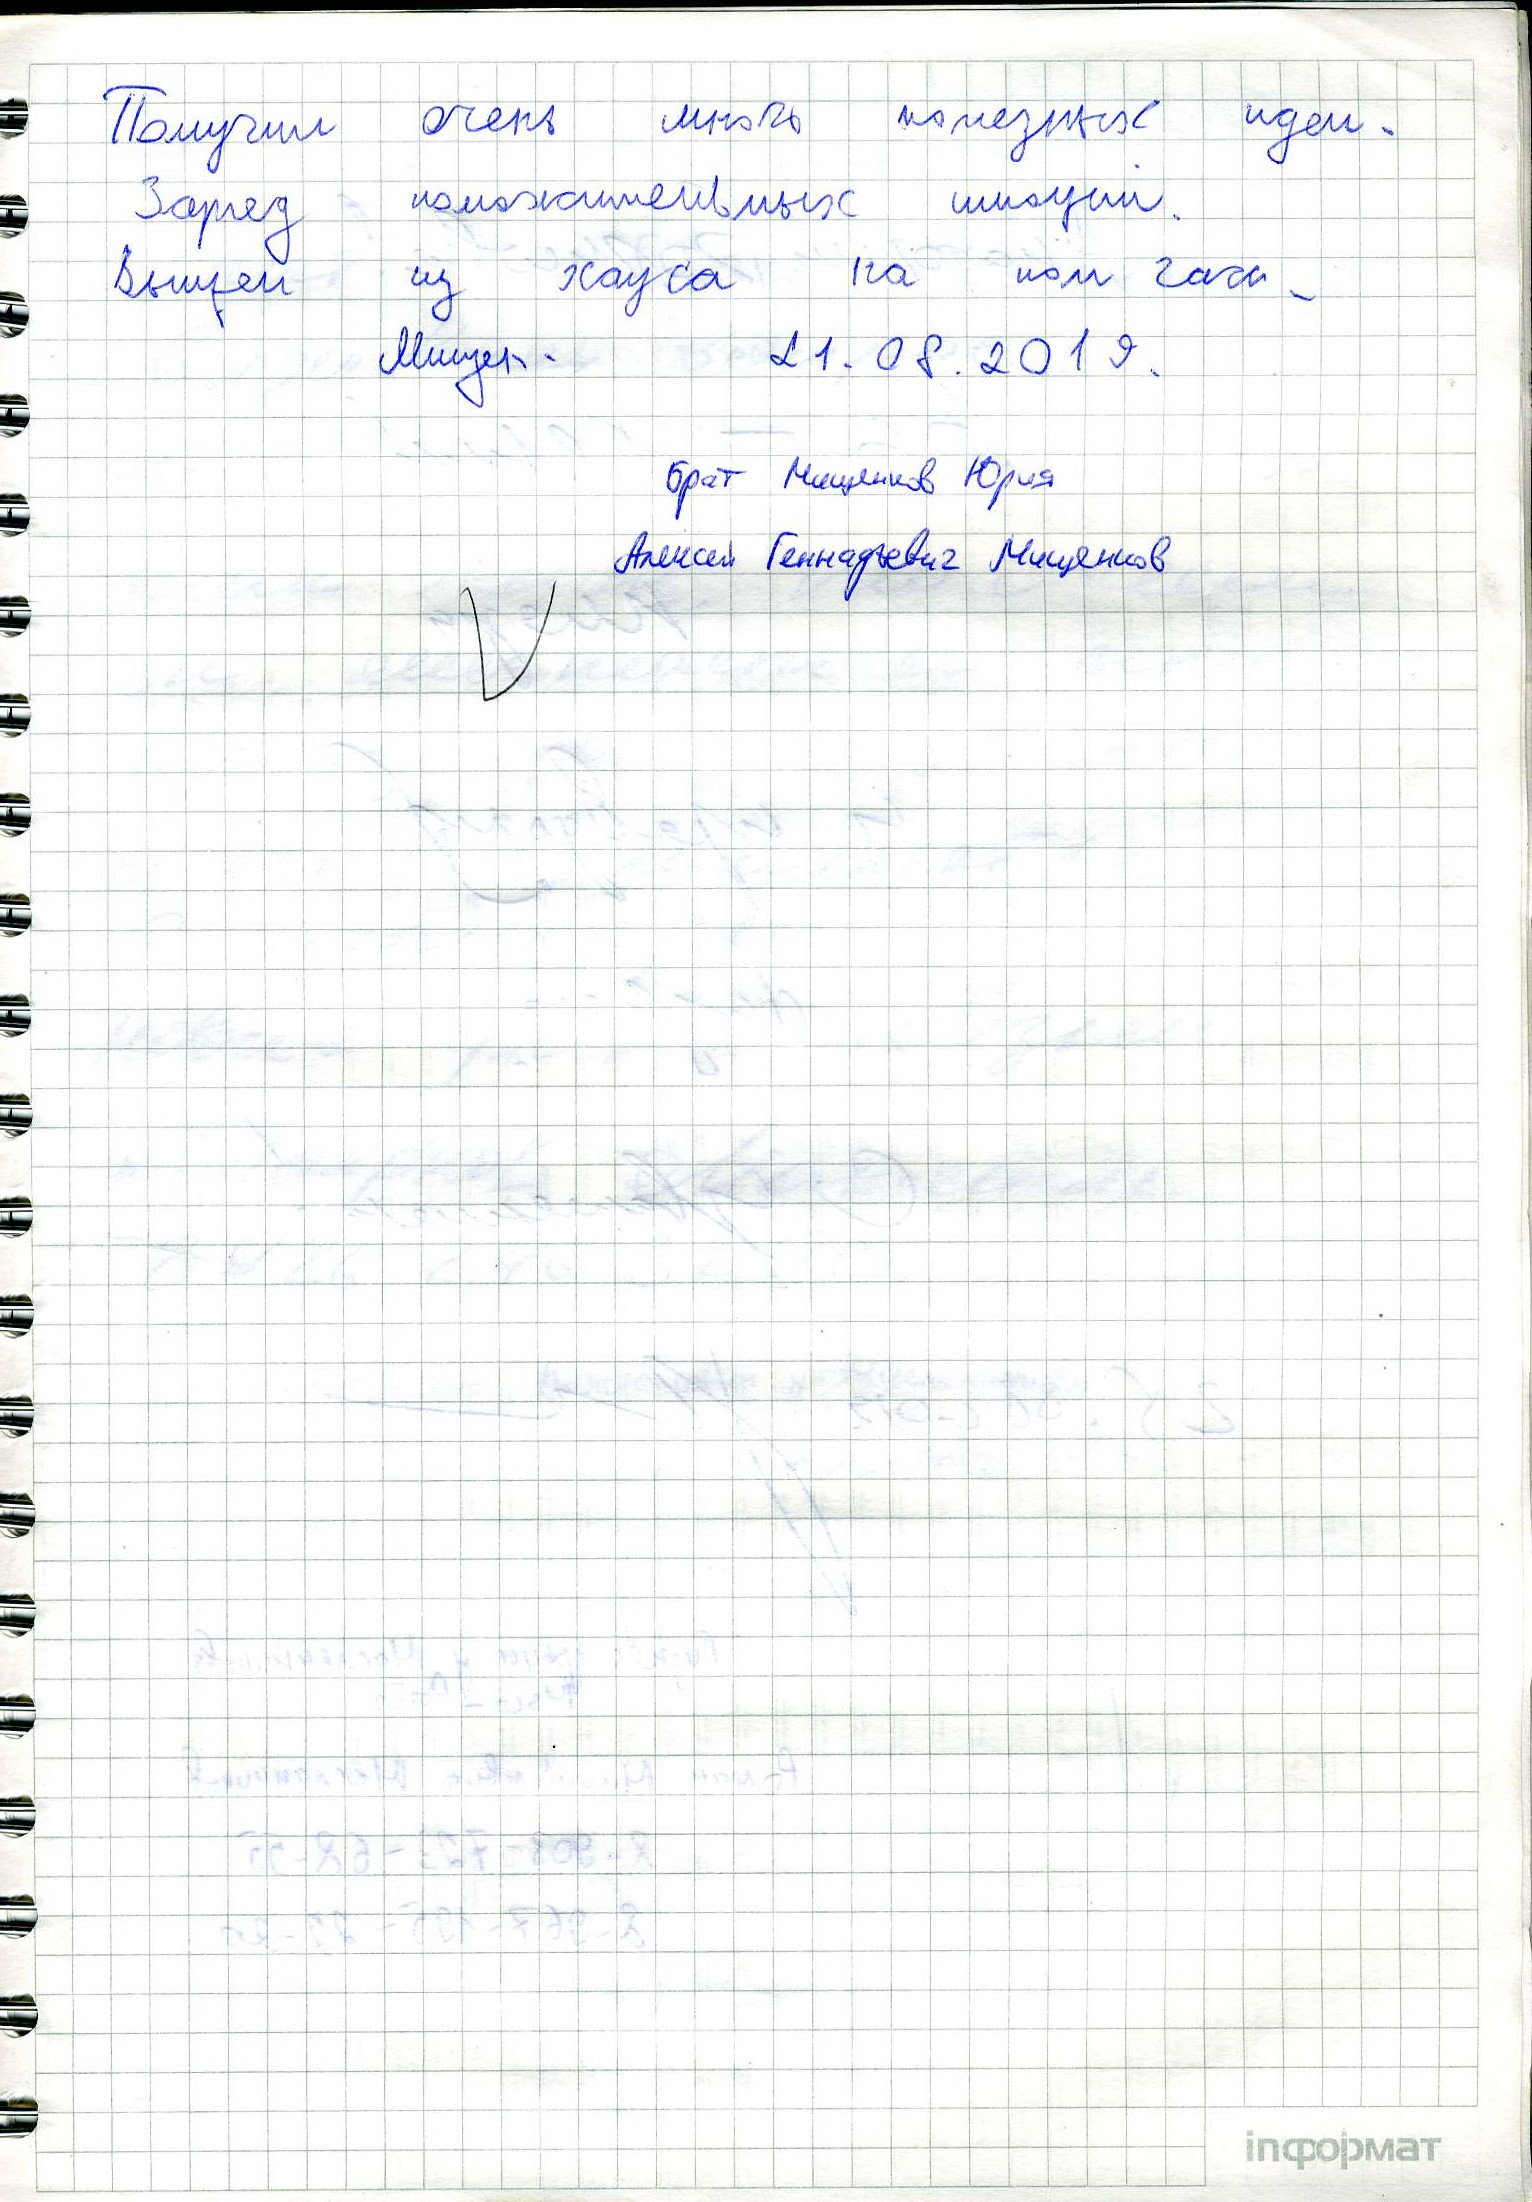 Получил очень много полезных идей.
Заряд положительных эмоций.
Вышел из хауса на пол часа.
Мищен. 21.08.2019.
брат Мищенков Юрия
Алексей Геннадьевич Мищенков
inформат